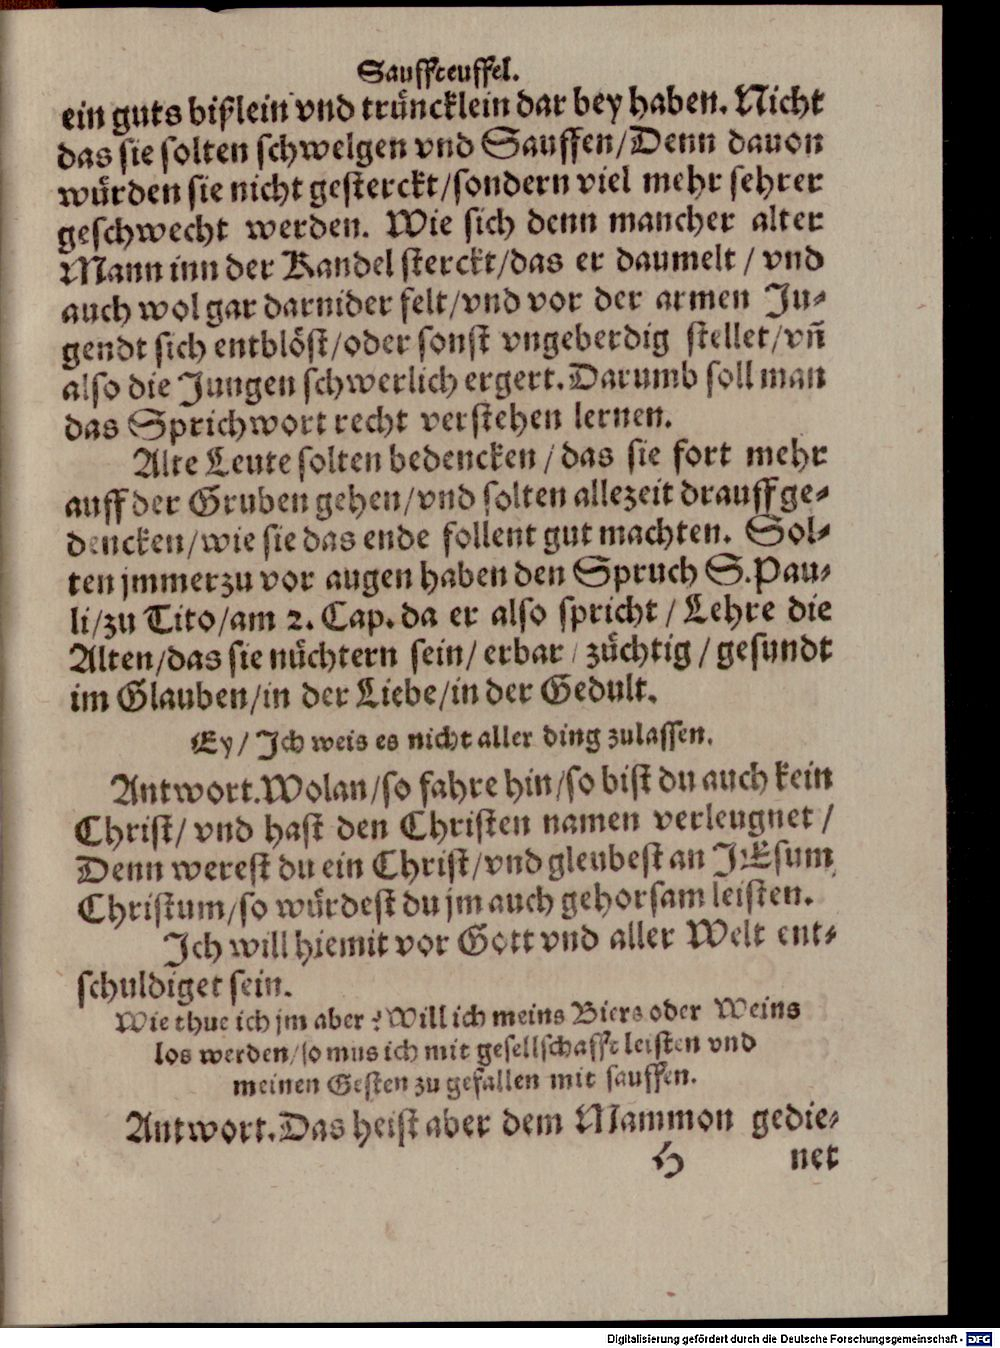 Sauffteuffel.
ein guts bißlein vnd trüncklein dar bey haben. Nicht
das sie solten schwelgen vnd Sauffen/Denn dauon
würden sie nicht gesterckt/sondern viel mehr sehrer
geschwecht werden. Wie sich denn mancher alter
Mann inn der Kandel sterckt/das er daumelt / vnd
auch wol gar darnider felt/vnd vor der armen Ju⸗
gendt sich entblöst/oder sonst vngeberdig stellet/vñ
also die Jungen schwerlich ergert. Darumb soll man
das Sprichwort recht verstehen lernen.
Alte Leute solten bedencken / das sie fort mehr
auff der Gruben gehen/vnd solten allezeit drauff ge⸗
dencken/wie sie das ende follent gut machten. Sol⸗
ten jmmerzu vor augen haben den Spruch S. Pau⸗
li/zu Tito/am 2. Cap. da er also spricht / Lehre die
Alten/das sie nüchtern sein/ erbar / züchtig / gesundt
im Glauben/in der Liebe/in der Gedult.
Ey/ Ich weis es nicht aller ding zulassen.
Antwort. Wolan/so fahre hin/so bist du auch kein
Christ/ vnd hast den Christen namen verleugnet /
Denn werest du ein Christ/vnd gleubest an JEsum
Christum/so würdest du jm auch gehorsam leisten.
Ich will hiemit vor Gott vnd aller Welt ent⸗
schuldiget sein.
Wie thue ich jm aber ? Will ich meins Biers oder Weins
los werden/so mus ich mit gesellschafft leisten vnd
meinen Gesten zu gefallen mit sauffen.
Antwort. Das heist aber dem Mammon gedie⸗
H net
Digitalisierung gefördert durch die Deutsche Forschungsgemeinschaft - DFG